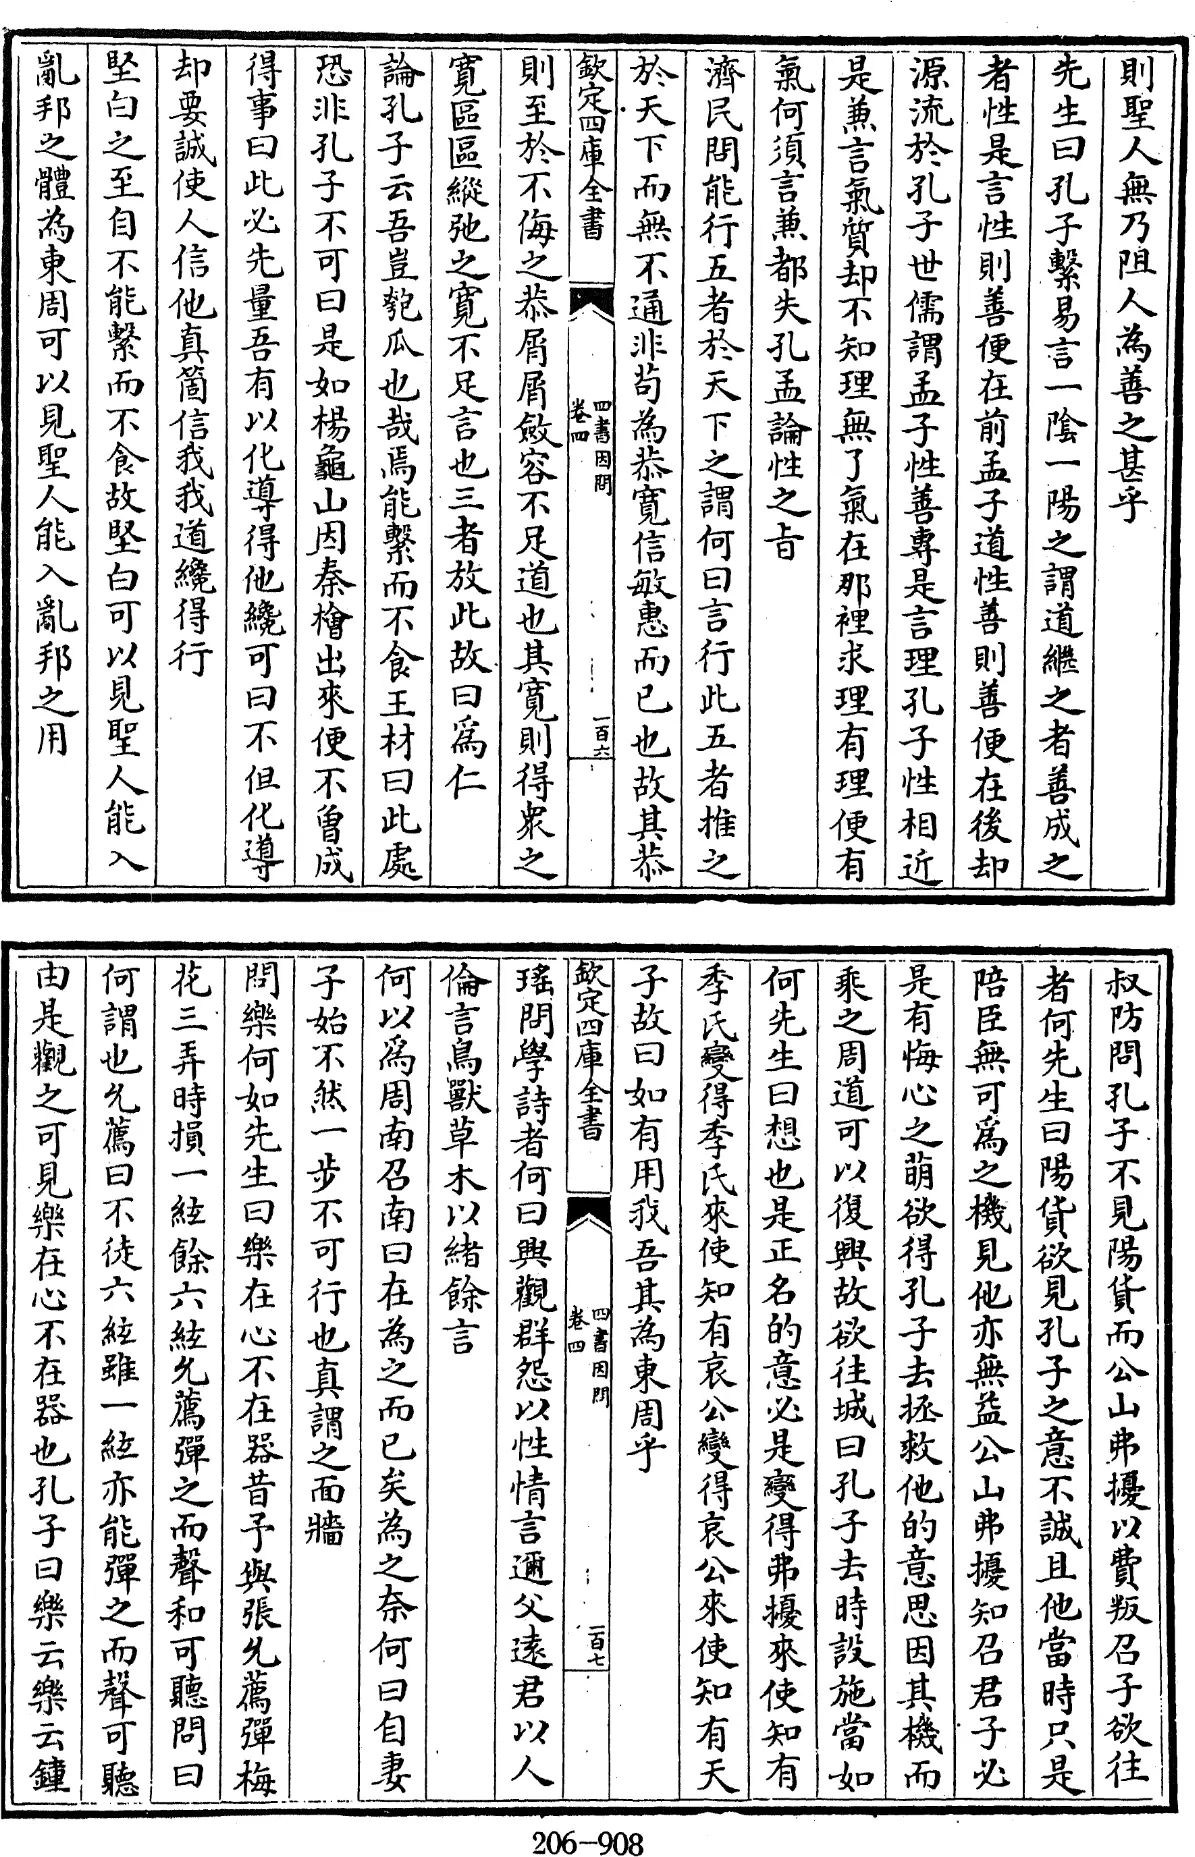 則聖人無乃阻人為善之甚乎
先生曰孔子繫易言一陰一陽之謂道繼之者善成之
者性是言性則善便在前孟子道性善則善便在後却
源流於孔子世儒謂孟子性善專是言理孔子性相近
是兼言氣質却不知理無了氣在那裡求理有理便有
氣何須言兼都失孔孟論性之㫖
濟民問能行五者於天下之謂何曰言行此五者推之
於天下而無不通非苟為恭寛信敏惠而已也故其恭
欽定四庫全書
四書因問
卷四
一百六
則至於不侮之恭屑屑斂容不足道也其寛則得衆之
寛區區縱弛之寛不足言也三者放此故曰爲仁
論孔子云吾豈匏瓜也哉焉能繫而不食王材曰此處
恐非孔子不可曰是如楊龜山因秦檜出來便不曾成
得事曰此必先量吾有以化導得他纔可曰不但化導
却要誠使人信他真箇信我我道纔得行
堅白之至自不能繫而不食故堅白可以見聖人能入
亂邦之體為東周可以見聖人能入亂邦之用
叔防問孔子不見陽貨而公山弗擾以費叛召子欲往
者何先生曰陽貨欲見孔子之意不誠且他當時只是
陪臣無可爲之機見他亦無益公山弗擾知召君子必
是有悔心之萌欲得孔子去拯救他的意思因其機而
乘之周道可以復興故欲往城曰孔子去時設施當如
何先生曰想也是正名的意必是變得弗擾來使知有
季氏變得季氏來使知有哀公變得哀公來使知有天
子故曰如有用我吾其為東周乎
欽定四庫全書
四書因問
卷四
一百七
瑤問學詩者何曰興觀群怨以性情言邇父遠君以人
倫言鳥獸草木以緒餘言
何以爲周南召南曰在為之而已矣為之奈何曰自妻
子始不然一步不可行也真謂之面牆
問樂何如先生曰樂在心不在器昔予與張允薦彈梅
花三弄時損一絃餘六絃允薦彈之而聲和可聽問曰
何謂也允薦曰不徒六絃雖一絃亦能彈之而聲可聽
由是觀之可見樂在心不在器也孔子曰樂云樂云鐘
206-908